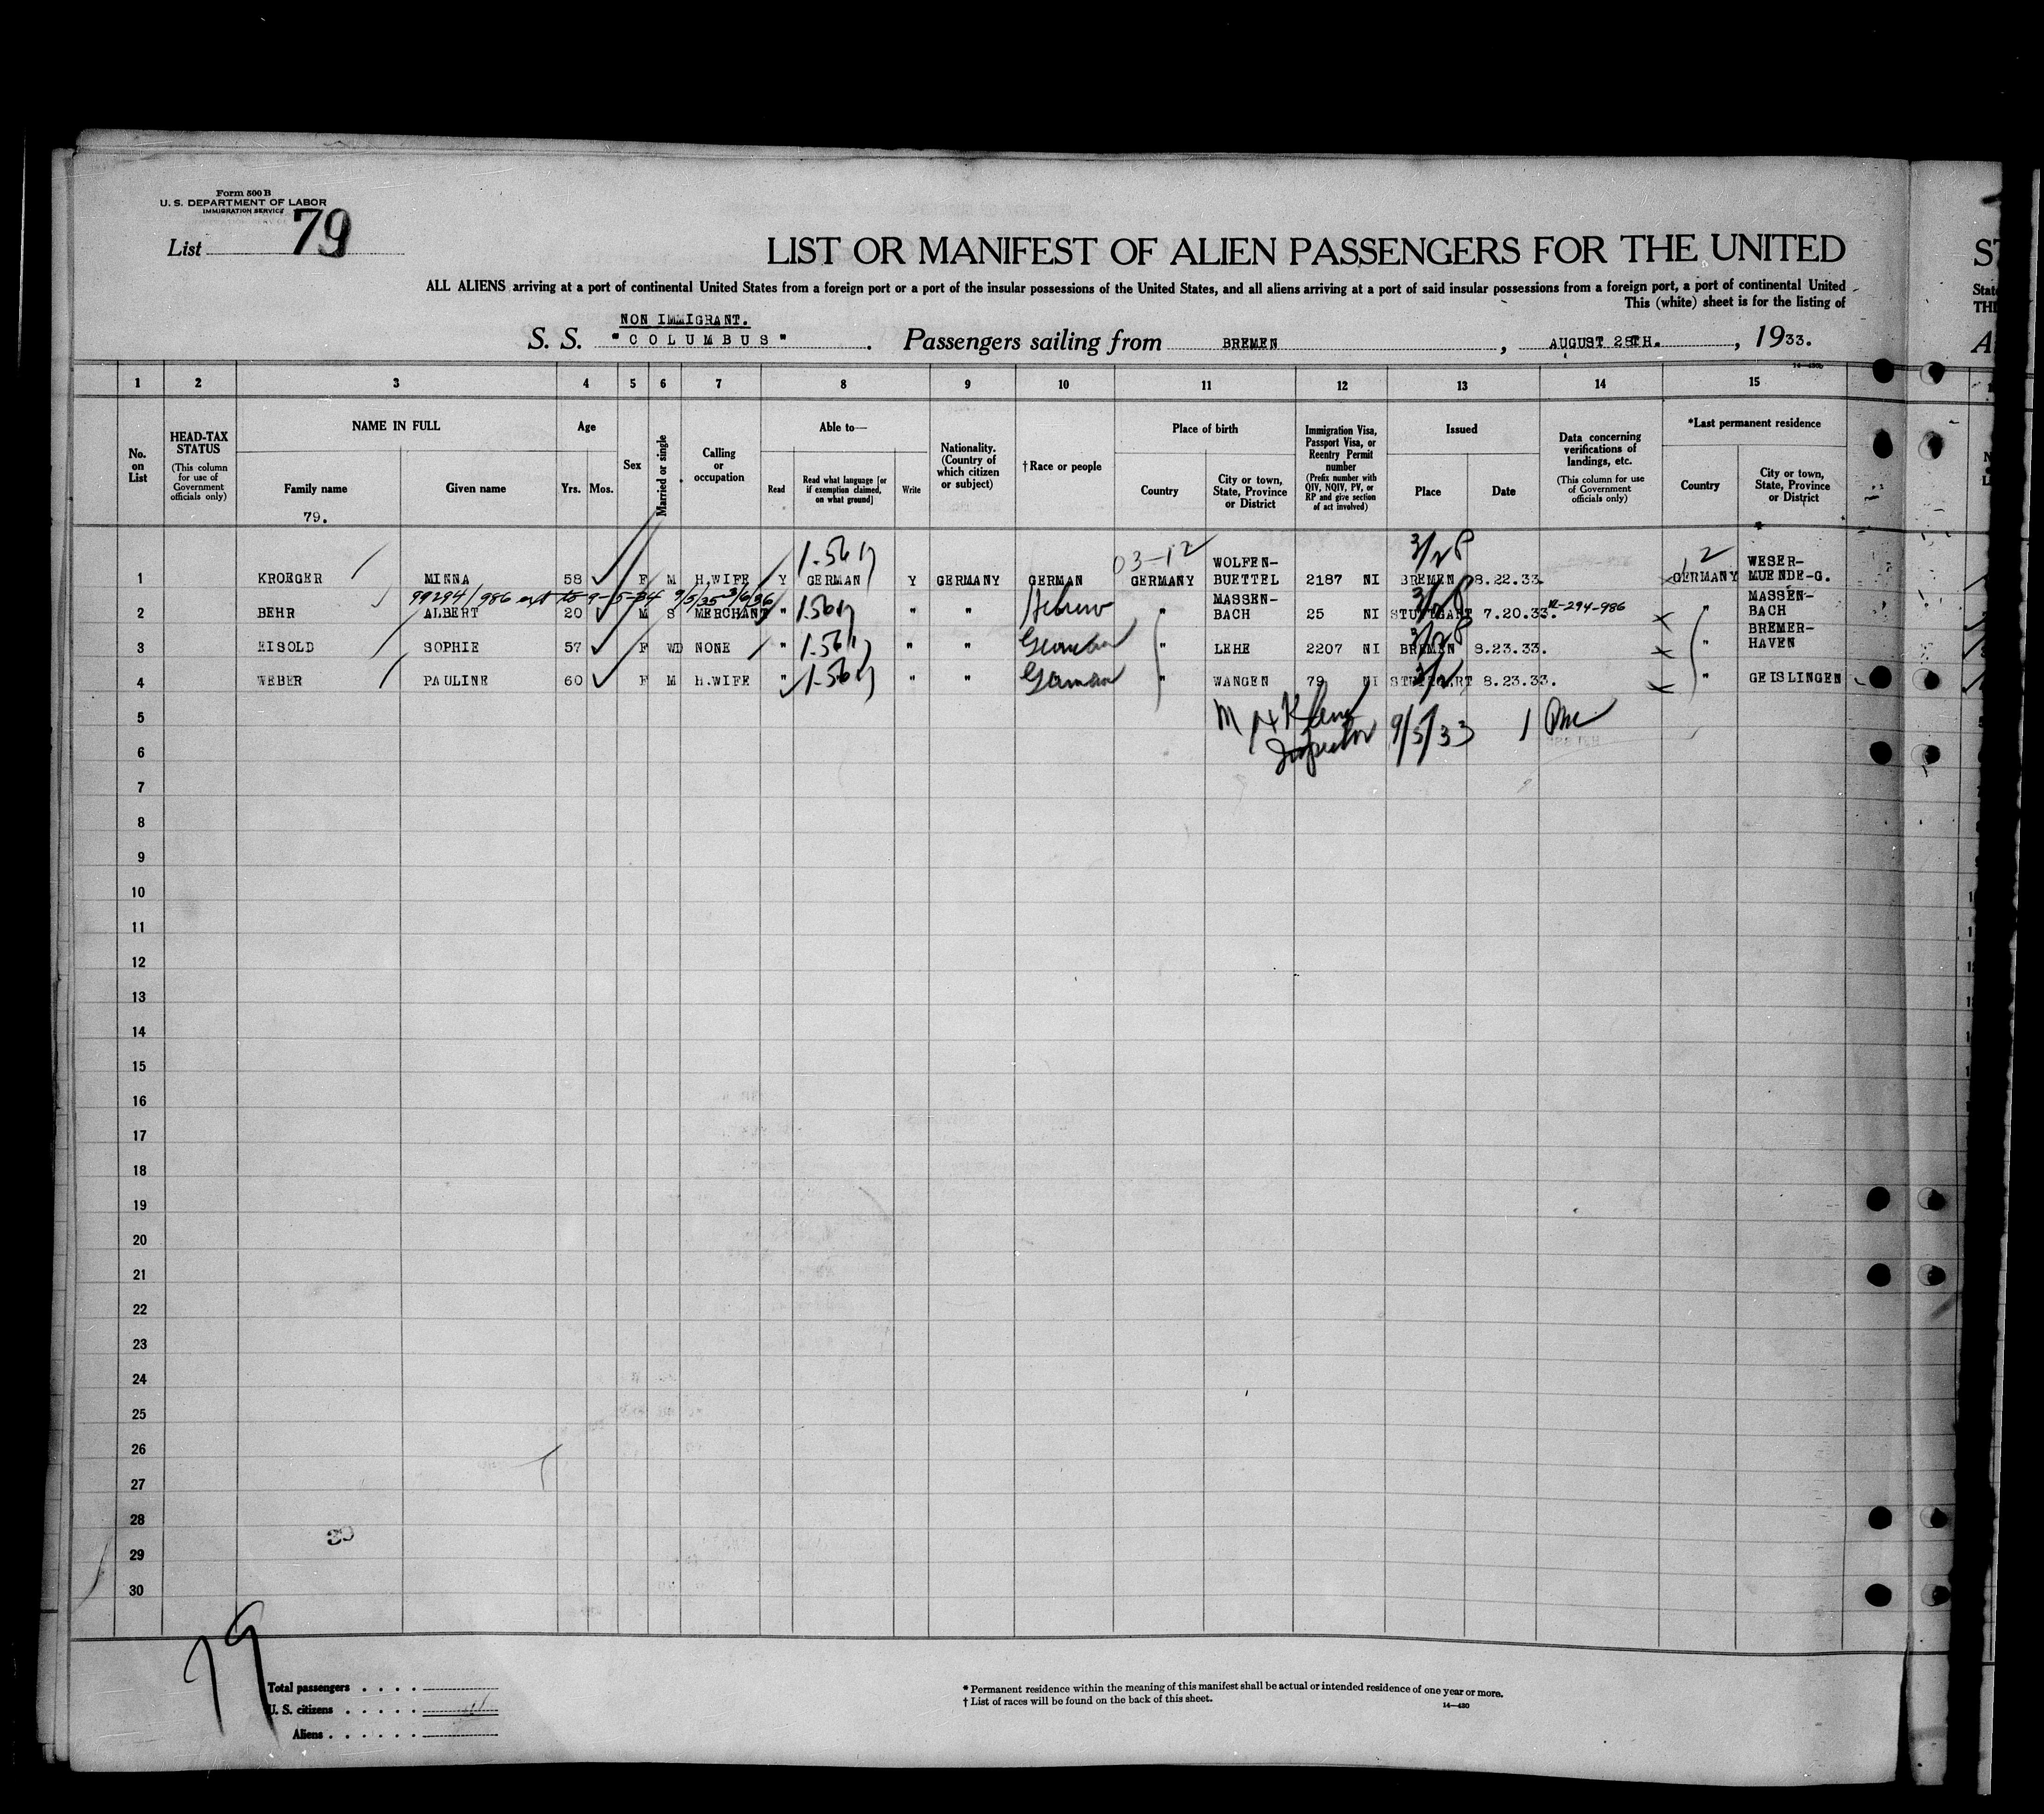 Form 500 B
U. S. DEPARTMENT OF LABOR
IMMIGRATION SERVICE
List 79
LIST OR MANIFEST OF ALIEN PASSENGERS FOR THE UNITED
ST
ALL ALIENS arriving at a port of continental United States from a foreign port or a port of the insular possessions of the United States, and all aliens arriving at a port of said insular possessions from a foreign port, a port of continental United
This (white) sheet is for the listing of
NON IMMIGRANT.
S. S. "COLUMBUS". Passengers sailing from BREMEN, AUGUST 28TH., 1933.
1 2 3 4 5 6 7 8 9 10 11 12 13 14 15
No. on List
HEAD-TAX STATUS (This column for use of Government officials only)
NAME IN FULL
Family name
79.
Given name
Age
Yrs. Mos.
Sex
Married or single
Calling or occupation
Able to—
Read
Read what language [or if exemption claimed, on what ground]
Write
Nationality. (Country of which citizen or subject)
†Race or people
Place of birth
Country
City or town, State, Province or District
Immigration Visa, Passport Visa, or Reentry Permit number (Prefix number with QIV, NQIV, PV, or RP and give section of act involved)
Issued
Place
Date
Data concerning verifications of landings, etc. (This column for use of Government officials only)
*Last permanent residence
Country
City or town, State, Province or District
03-12
1 KROEGER MINNA 58 F M H.WIFE Y GERMAN Y GERMANY GERMAN GERMANY WOLFEN-BUETTEL 2187 NI BREMEN 8.22.33. GERMANY WESER-MUENDE-G.
99294/986 ext to 9-5-34 9/5/35 3/6/36
2 BEHR ALBERT 20 M S MERCHANT " " " Hebrew " MASSEN-BACH 25 NI STUTTGART 7.20.33. " MASSEN-BACH
3 EISOLD SOPHIE 57 F WD NONE " " " German " LEHE 2207 NI BREMEN 8.23.33. " BREMER-HAVEN
4 WEBER PAULINE 60 F M H.WIFE " " " German " WANGEN 79 NI STUTTGART 8.23.33. " GEISLINGEN
5
Inspector 9/5/33
6
7
8
9
10
11
12
13
14
15
16
17
18
19
20
21
22
23
24
25
26
27
28
29
30
79
Total passengers
U. S. citizens
Aliens
* Permanent residence within the meaning of this manifest shall be actual or intended residence of one year or more.
† List of races will be found on the back of this sheet.
14—430